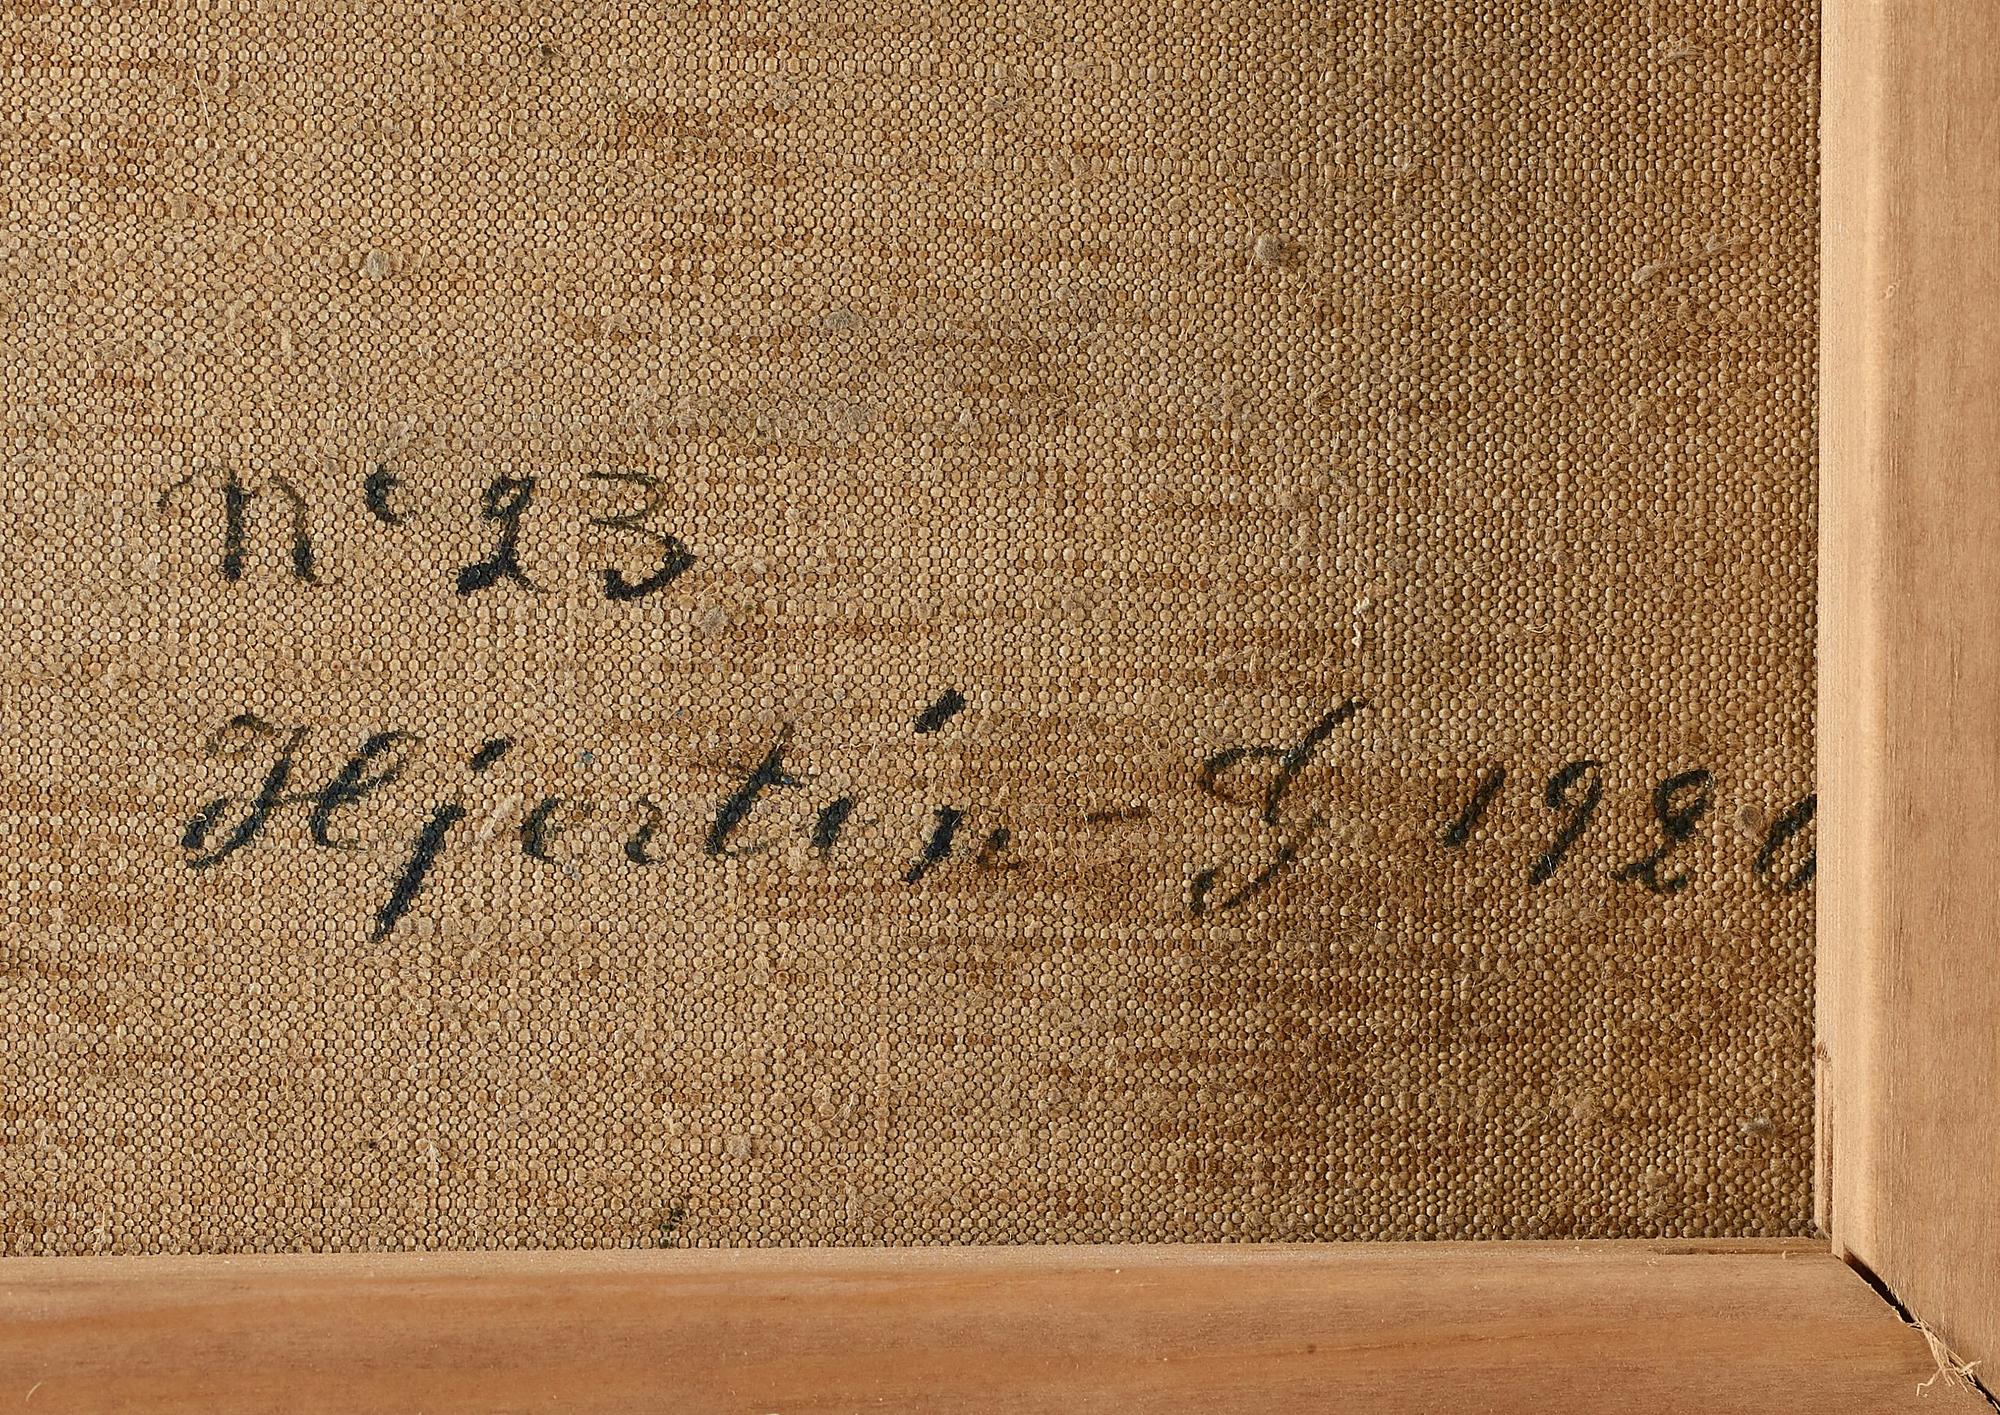 No 23
Hjertén - G 1920